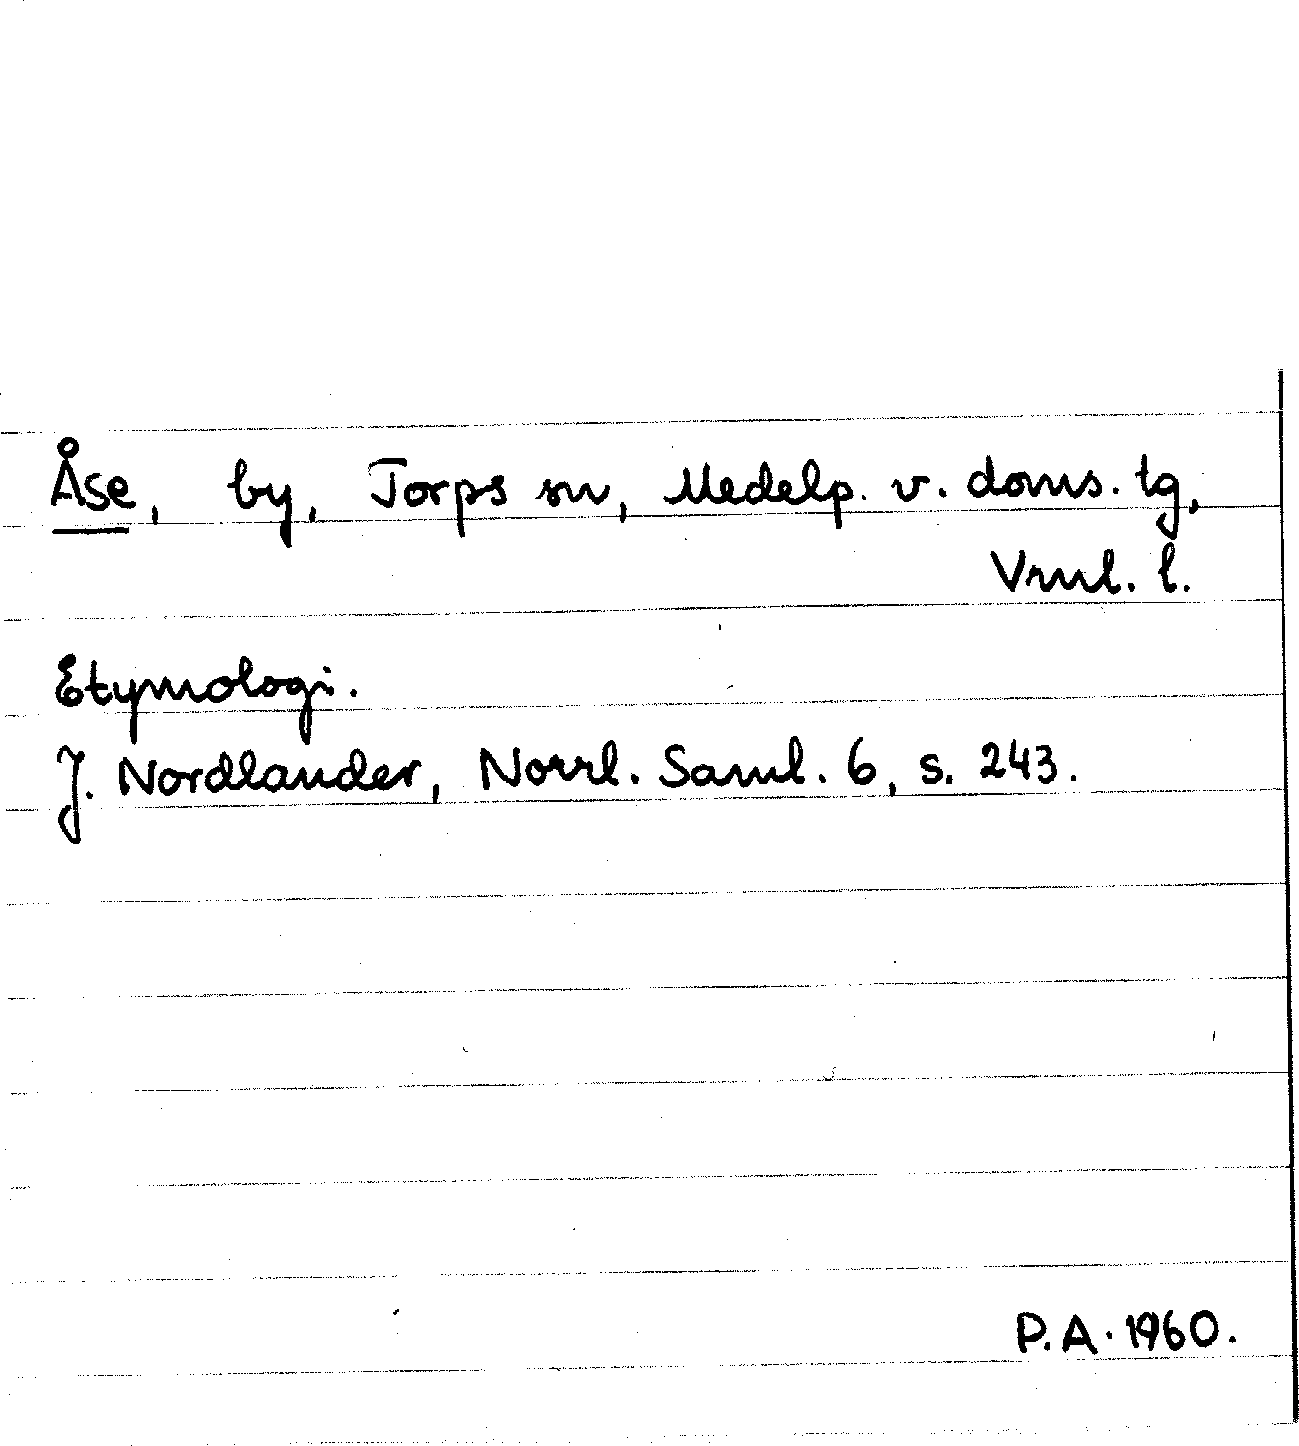 Åse, by, Torps sn, Medelp. v. doms. tg,
Vrnl. l.
Etymologi.
J. Nordlander, Norrl. Saml. 6, s. 243.
P.A. 1960.